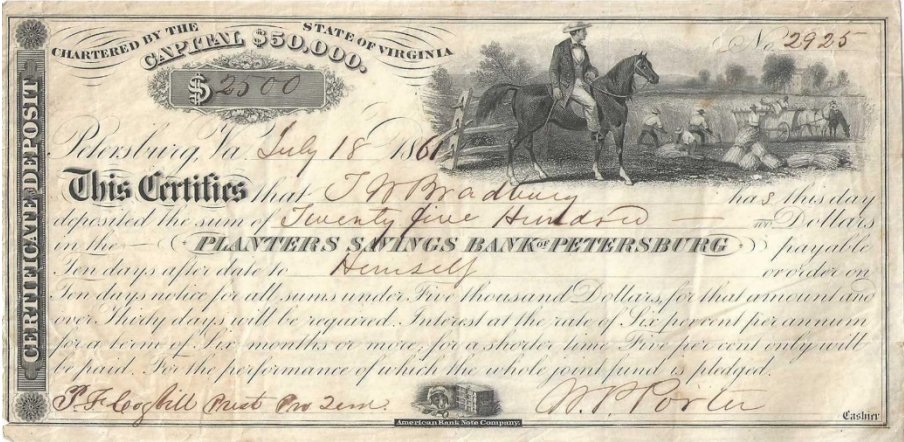 CERTIFICATE OF DEPOSIT
CHARTERED BY THE STATE OF VIRGINIA
CAPITAL $50,000.
No. 2925
$ 2500
Petersburg, Va. July 18 1861
This Certifies that T W Bradbury has this day
deposited the sum of Twenty five Hundred — Dollars
in the PLANTERS SAVINGS BANK OF PETERSBURG payable
Ten days after date to Himself or order on
Ten days notice for all sums under Five thousand Dollars, for that amount and
over Thirty days will be required. Interest at the rate of Six per cent per annum
for a term of Six months or more, for a shorter time Five per cent only will
be paid. For the performance of which the whole joint fund is pledged.
P. F. Coghill Prest Pro Tem. W. P. Porter Cashier
American Bank Note Company.